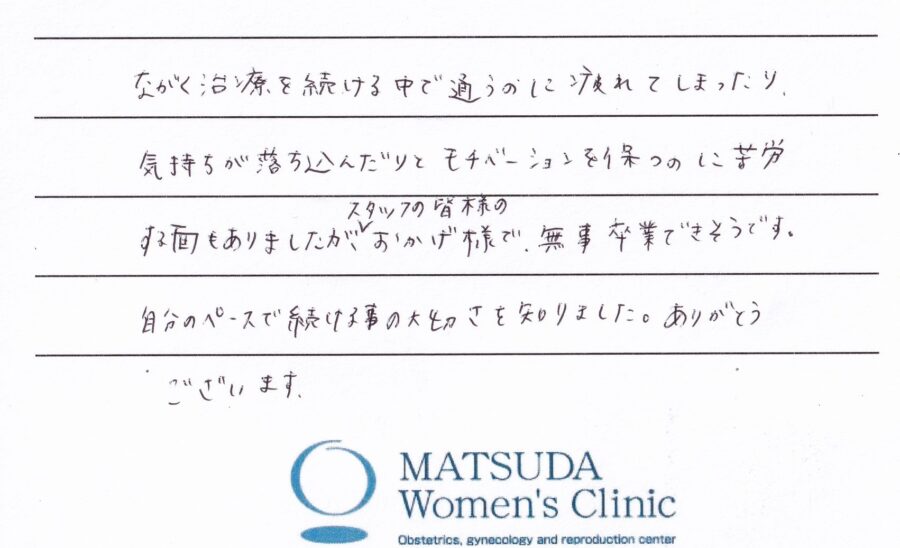 ながく治療を続ける中で通うのに疲れてしまったり、
気持ちが落ち込んだりと モチベーションを保つのに苦労
スタッフの皆様の
する面もありましたが、おかげ様で、無事卒業できそうです。
自分のペースで続ける事の大切さを知りました。ありがとう
ございます。
MATSUDA
Women's Clinic
Obstetrics, gynecology and reproduction center